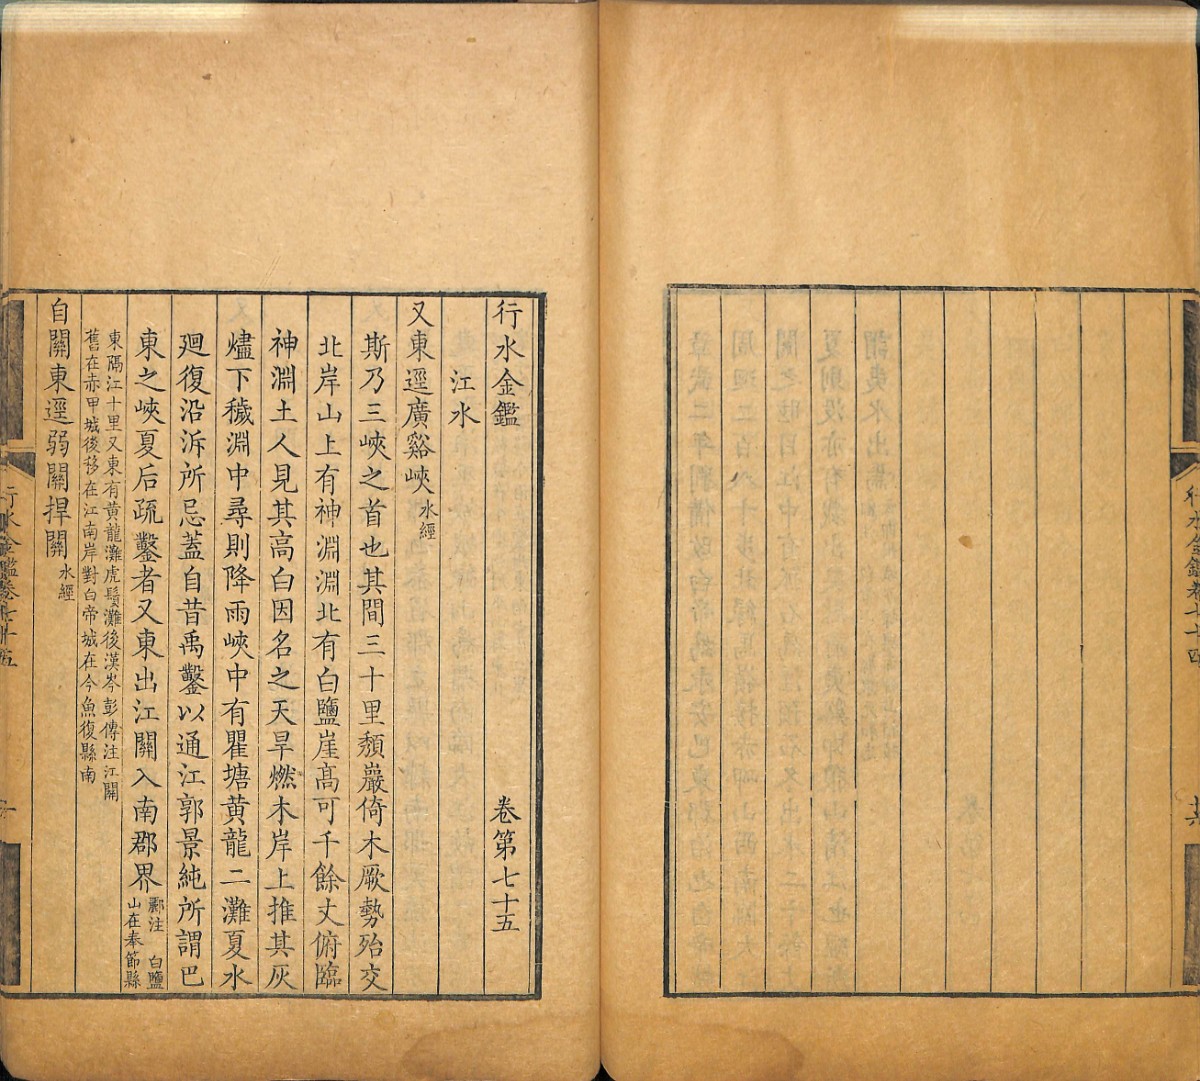 行水金鑑卷七十四
行水金鑑 卷第七十五
江水
又東逕廣谿峽水經
斯乃三峽之首也其間三十里頹巖倚木厥勢殆交
北岸山上有神淵淵北有白鹽崖高可千餘丈俯臨
神淵土人見其高白因名之天旱燃木岸上推其灰
燼下穢淵中尋則降雨峽中有瞿塘黃龍二灘夏水
廻復沿泝所忌蓋自昔禹鑿以通江郭景純所謂巴
東之峽夏后疏鑿者又東出江關入南郡界酈注 白鹽
山在奉節縣
東隔江十里又東有黃龍灘虎鬚灘後漢岑彭傳注江關
舊在赤甲城後移在江南岸對白帝城在今魚復縣南
自關東逕弱關捍關水經
行水金鑑卷七十五